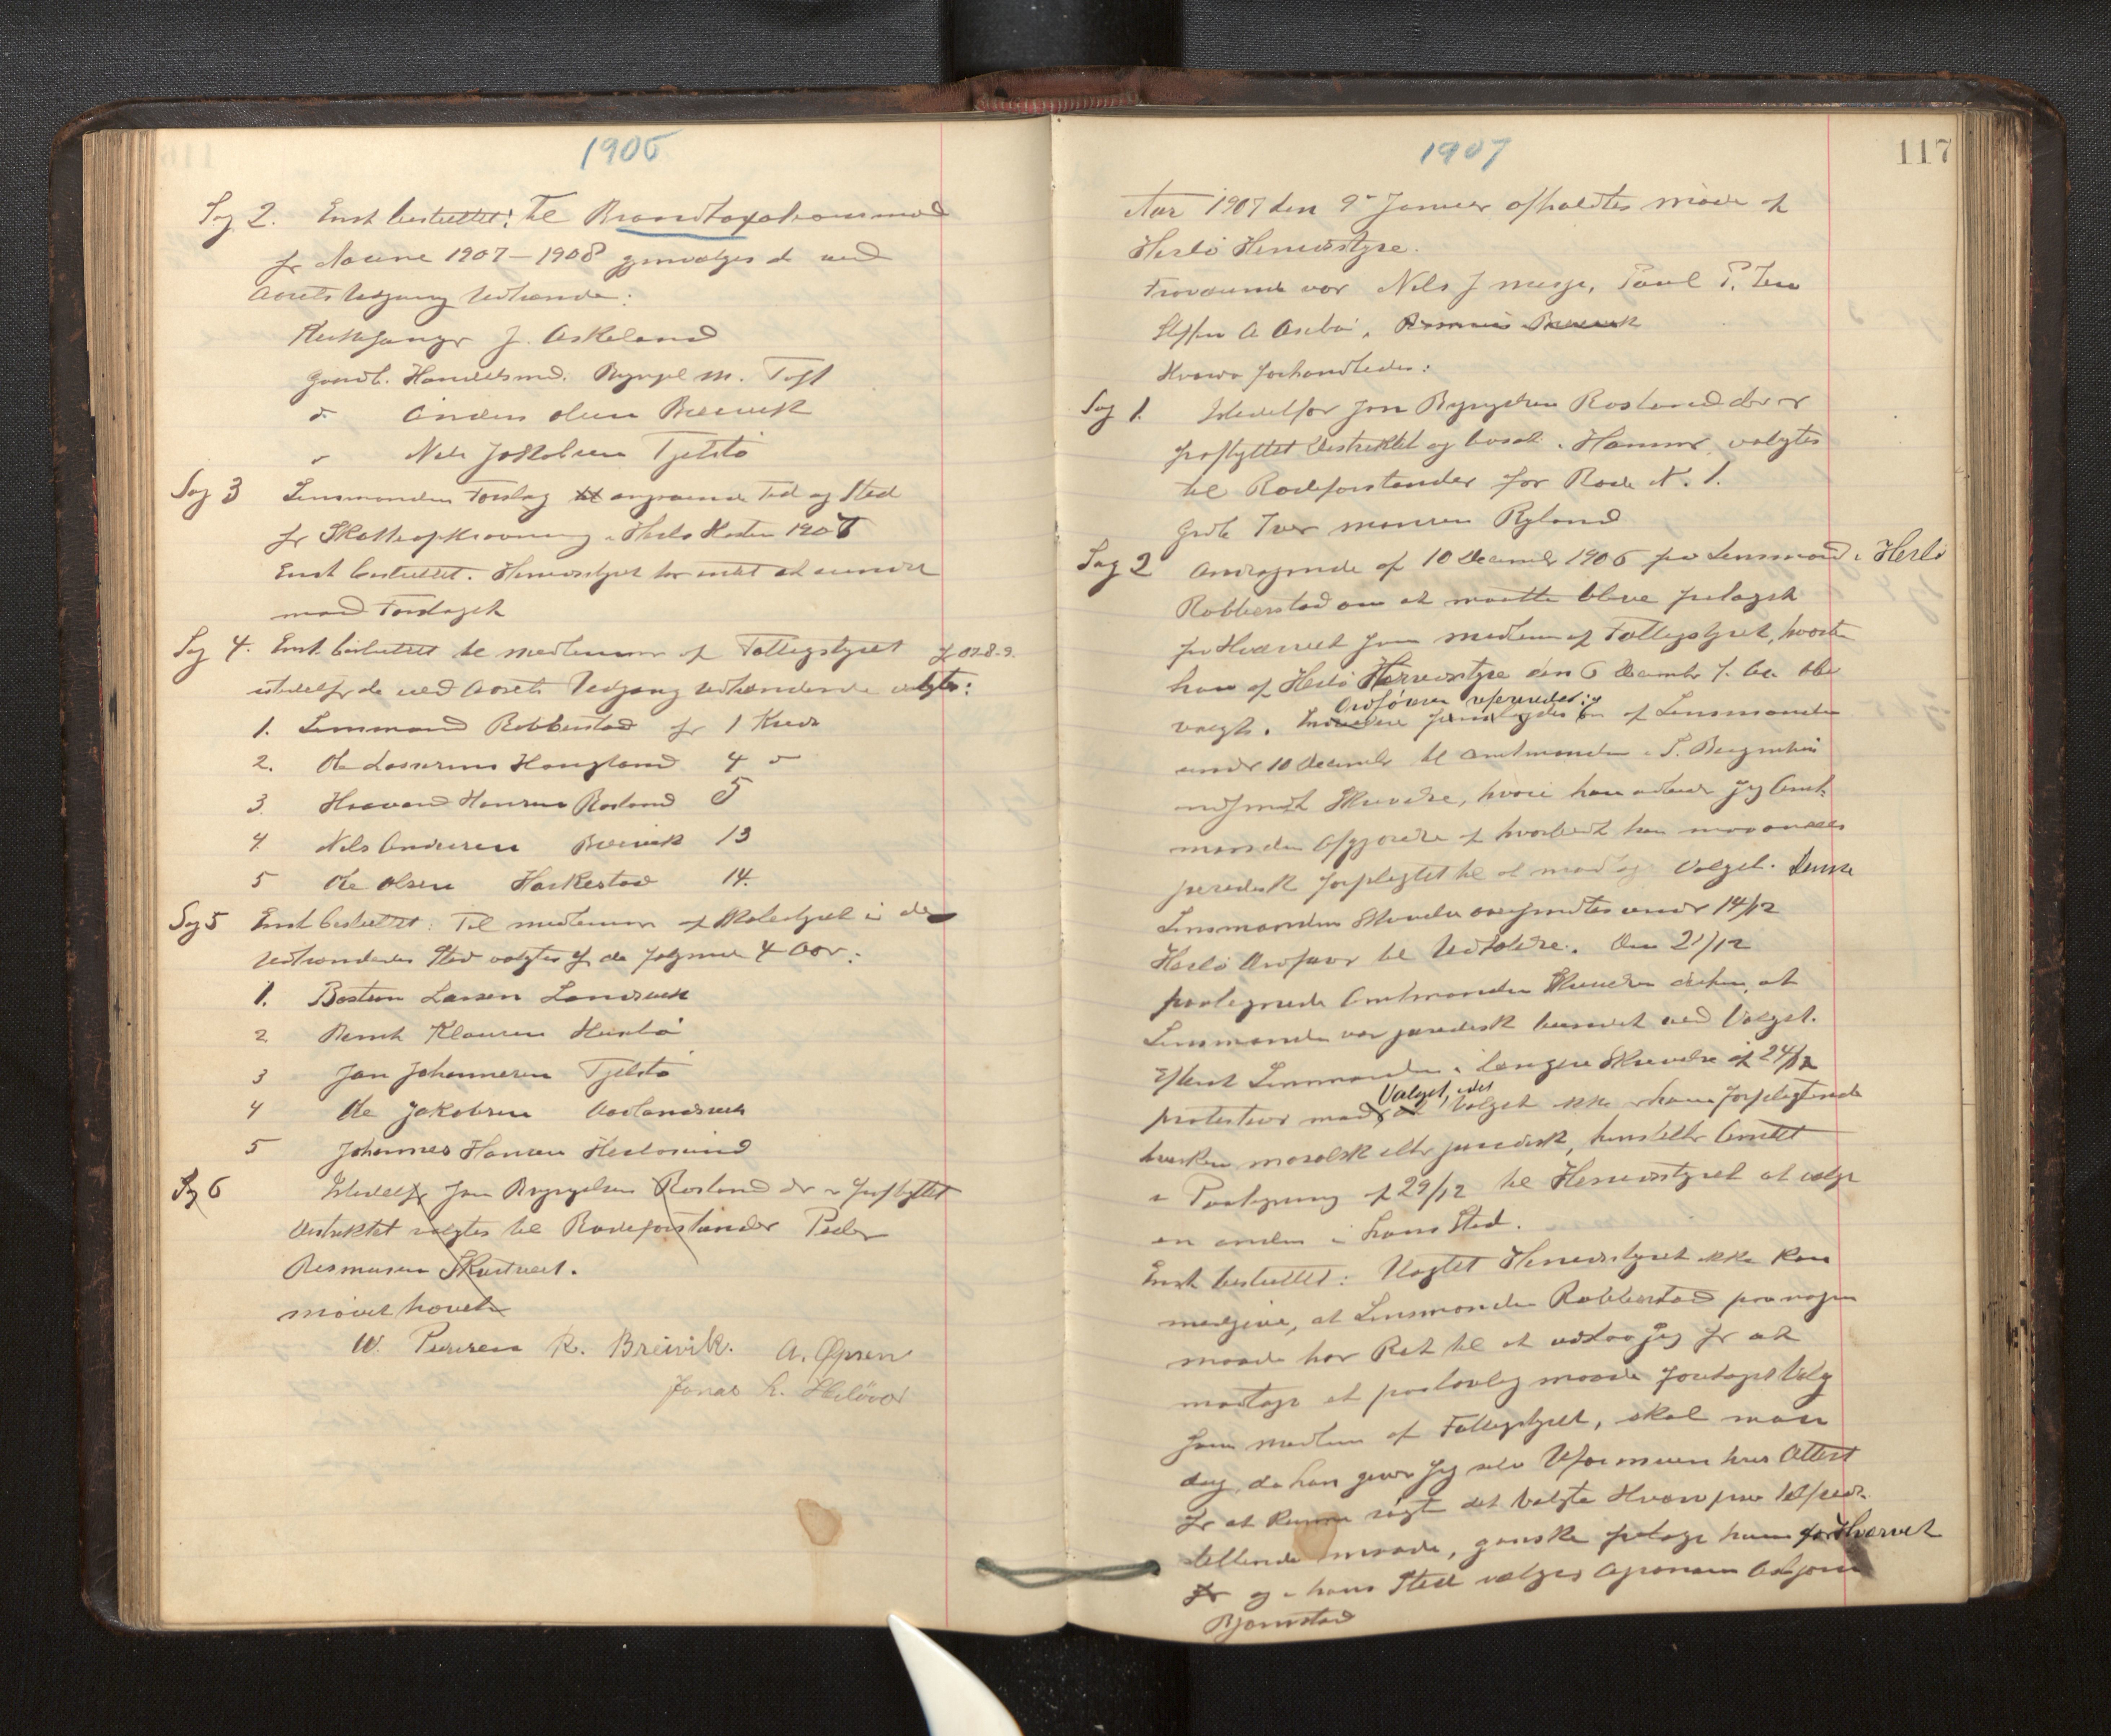 1906
Sag 2. Enst besluttet: Til Brandtaxationsmænd
for Aarene 1907-1908 gjenvælges de ved
Aarets Udgang Udtrædende:
Kirkesanger J. Askeland
Gaardb. Handelsmd. Brynjel M. Toft
do Anders Olsen Breivik
do Nils Jakobsen Tjeldstø
Sag 3 Lensmandens Forslag angaaende Tid og Sted
for Skatteopkrævning i Herlø Høsten 1907
Enst besluttet. Herredsstyret har intet at erindre
mod Forslaget
Sag 4. Enst. besluttet til medlemmer af Fattigstyret f 07-8-9.
istedetfor de ved Aarets Udgang Udtrædende valgtes:
1. Lensmand Robberstad for 1 Kreds
2. Ole Lassesen Haugland 4 do
3. Haavard Hansen Rosland 5
4. Nils Andersen Breivik 13
5 Ole Olsen Harkestad 14.
Sag 5 Enst besluttet: Til medlemmer af Skolestyret i de
Udtrædendes Sted valgtes for de følgende 4 Aar:
1. Bastian Larsen Landsvik
2 Bernt Klausen Herdlø
3 Jan Johannesen Tjeldstø
4 Ole Jakobsen
5 Johannes Hansen Herløsund
Sag 6 Istedetfor Jon Brynjelsen Rosland der er fraflyttet
Distriktet valgtes til Rodeforstander Peder
Rasmusen Skurtveit.
mødet hævet
W. R. Breivik. A. Øpsen
Jonas L.
1907
117
Aar 1907 den 9de Januar afholdtes møde af
Herlø Herredsstyre.
Fraværende var Nils J Misje, Paul P.
Steffen A Asebø, Rasmus Breivik
Hvorda forhandledes:
Sag 1. Istedetfor Jon Brynjelsen Rosland der er
fraflyttet Distriktet og bosat i Hammer valgtes
til Rodeforstander for Rode N. 1.
Grdb Iver Monsen Ryland
Sag 2 Andragende af 10 December 1906 fra Lensmand i Herlø
Robberstad om at maatte blive fritaget
for Hvervet som medlem af Fattigstyret, hvortil
han af Herlø Herredsstyre den 6 December f. Aa. blev
valgt. Ordføreren refererede: af Lensmanden
under 10 December til Amtmanden i S. Bergenhus
indsendt Skrivelse, hvori han udbeder sig Amt-
mandens Afgjørelse af hvorvidt han
juridisk forpligtet til at modtage Valget. Denne
Lensmandens Skrivelse oversendtes under 14/12
Herlø Ordfører til Udtalelse. Den 21/12
paategnede Amtmanden Skrivelsen derhen, at
Lensmanden var juridisk bunden ved Valget.
Efterat Lensmanden i længere Skrivelse af 24/12
protesterer mod Valget, idet Valget ikke er ham forpligtende
hverken moralsk eller juridisk, henstiller Amtet
i Paategning af 29/12 til Herredsstyret at vælge
en anden i hans Sted.
Enst besluttet: Uagtet Herredsstyret ikke kan
medgive, at Lensmanden Robberstad paa nogen
maade har Ret til at undslaa sig for at
modtage et paa lovlig maade foretaget Valg
som medlem af Fattigstyret, skal man
dog, da han giver sig selv Uformuenheds Attest
for at kunne røgte det valgte Hverv paa tilfreds-
stillende maade, ganske fritage ham for Hvervet
og i hans Sted vælges Agronom Asbjørn
Bjørnstad